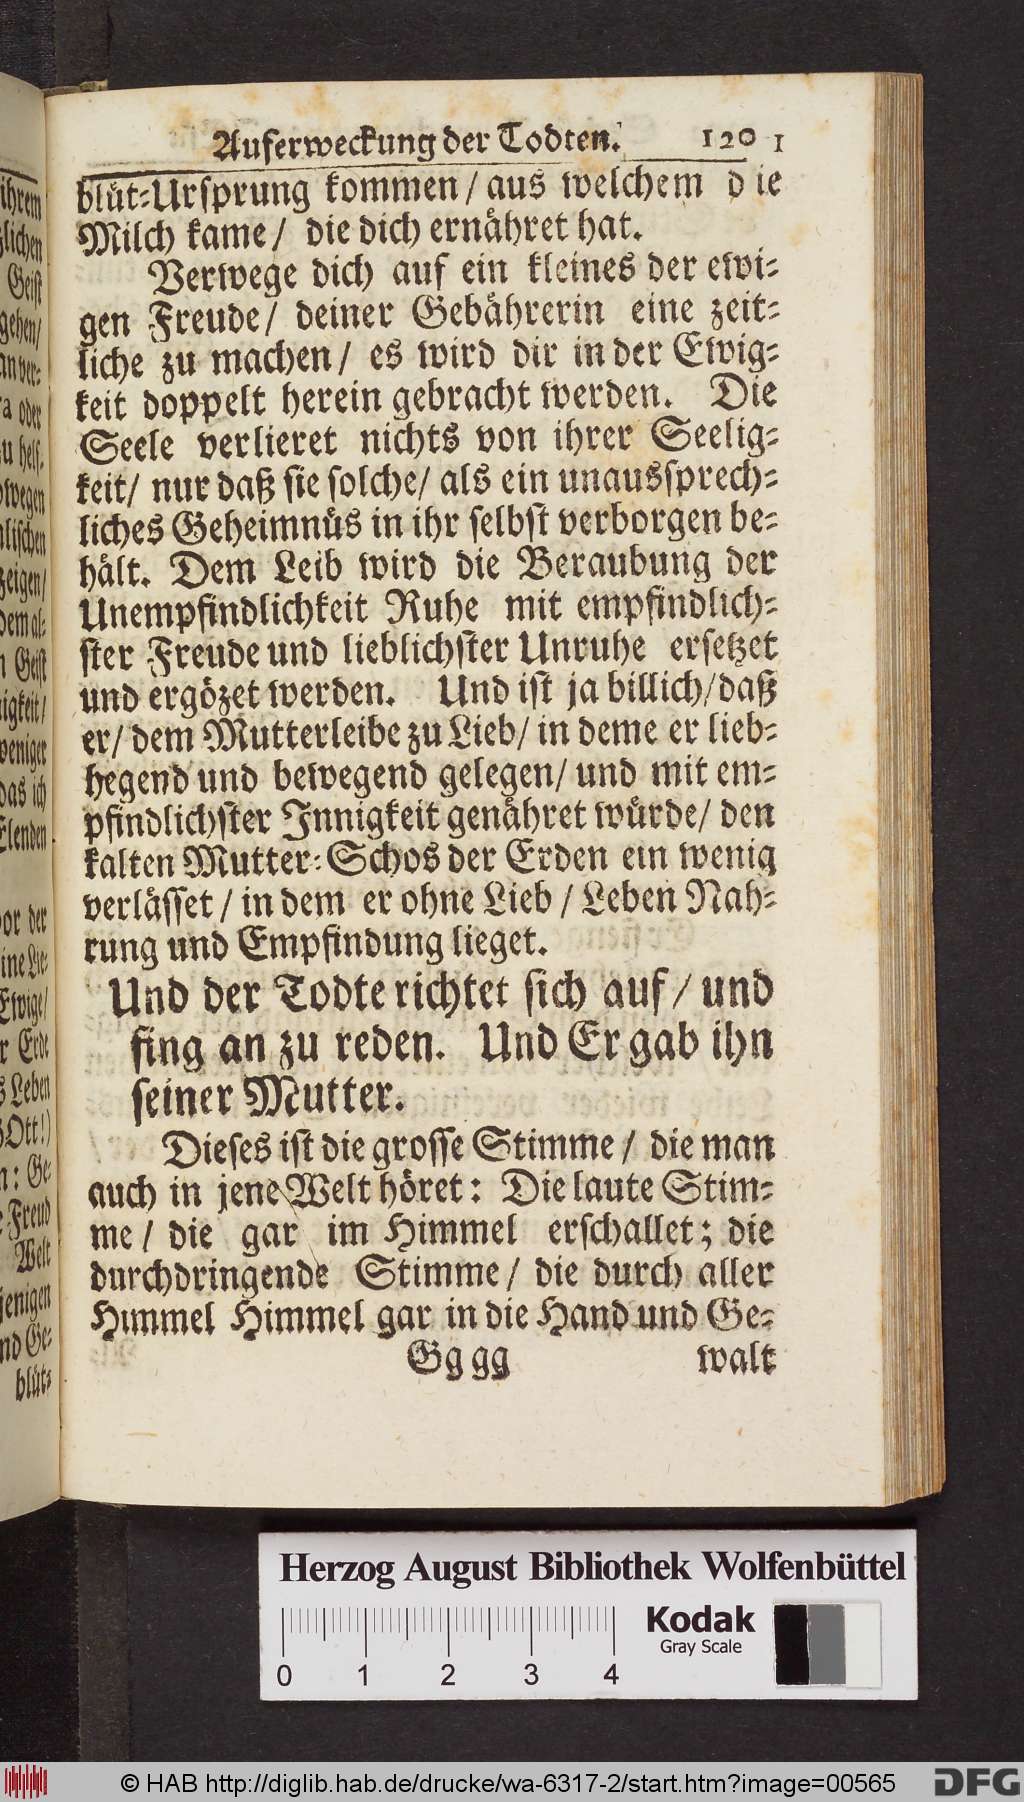 Auferweckung der Todten. 1201
blůt-Ursprung kommen/ aus welchem die
Milch kame/ die dich ernåhret hat.
Verwege dich auf ein kleines der ewi-
gen Freude/ deiner Gebåhrerin eine zeit-
liche zu machen/ es wird dir in der Ewig-
keit doppelt herein gebracht werden. Die
Seele verlieret nichts von ihrer Seelig-
keit/ nur daß sie solche/ als ein unaussprech-
liches Geheimnůs in ihr selbst verborgen be-
hålt. Dem Leib wird die Beraubung der
Unempfindlichkeit Ruhe mit empfindlich-
ster Freude und lieblichster Unruhe ersetzet
und ergözet werden. Und ist ja billich/ daß
er/ dem Mutterleibe zu Lieb/ in deme er lieb-
hegend und bewegend gelegen/ und mit em-
pfindlichster Innigkeit genåhret wůrde/ den
kalten Mutter-Schos der Erden ein wenig
verlåsset/ in dem er ohne Lieb/ Leben Nah-
rung und Empfindung lieget.
Und der Todte richtet sich auf/ und
fing an zu reden. Und Er gab ihn
seiner Mutter.
Dieses ist die grosse Stimme/ die man
auch in jene Welt höret: Die laute Stim-
me/ die gar im Himmel erschallet; die
durchdringende Stimme/ die durch aller
Himmel Himmel gar in die Hand und Ge-
Gg gg walt
ihrem
Geist
gehen/
oder
zeigen/
Geist
weniger
das ich
Elenden
vor der
Ewige/
Erde
Leben
GOtt!)
Freud
Welt
jenigen
blůt-
Herzog August Bibliothek Wolfenbüttel
Kodak
Gray Scale
0 1 2 3 4
© HAB http://diglib.hab.de/drucke/wa-6317-2/start.htm?image=00565
DFG